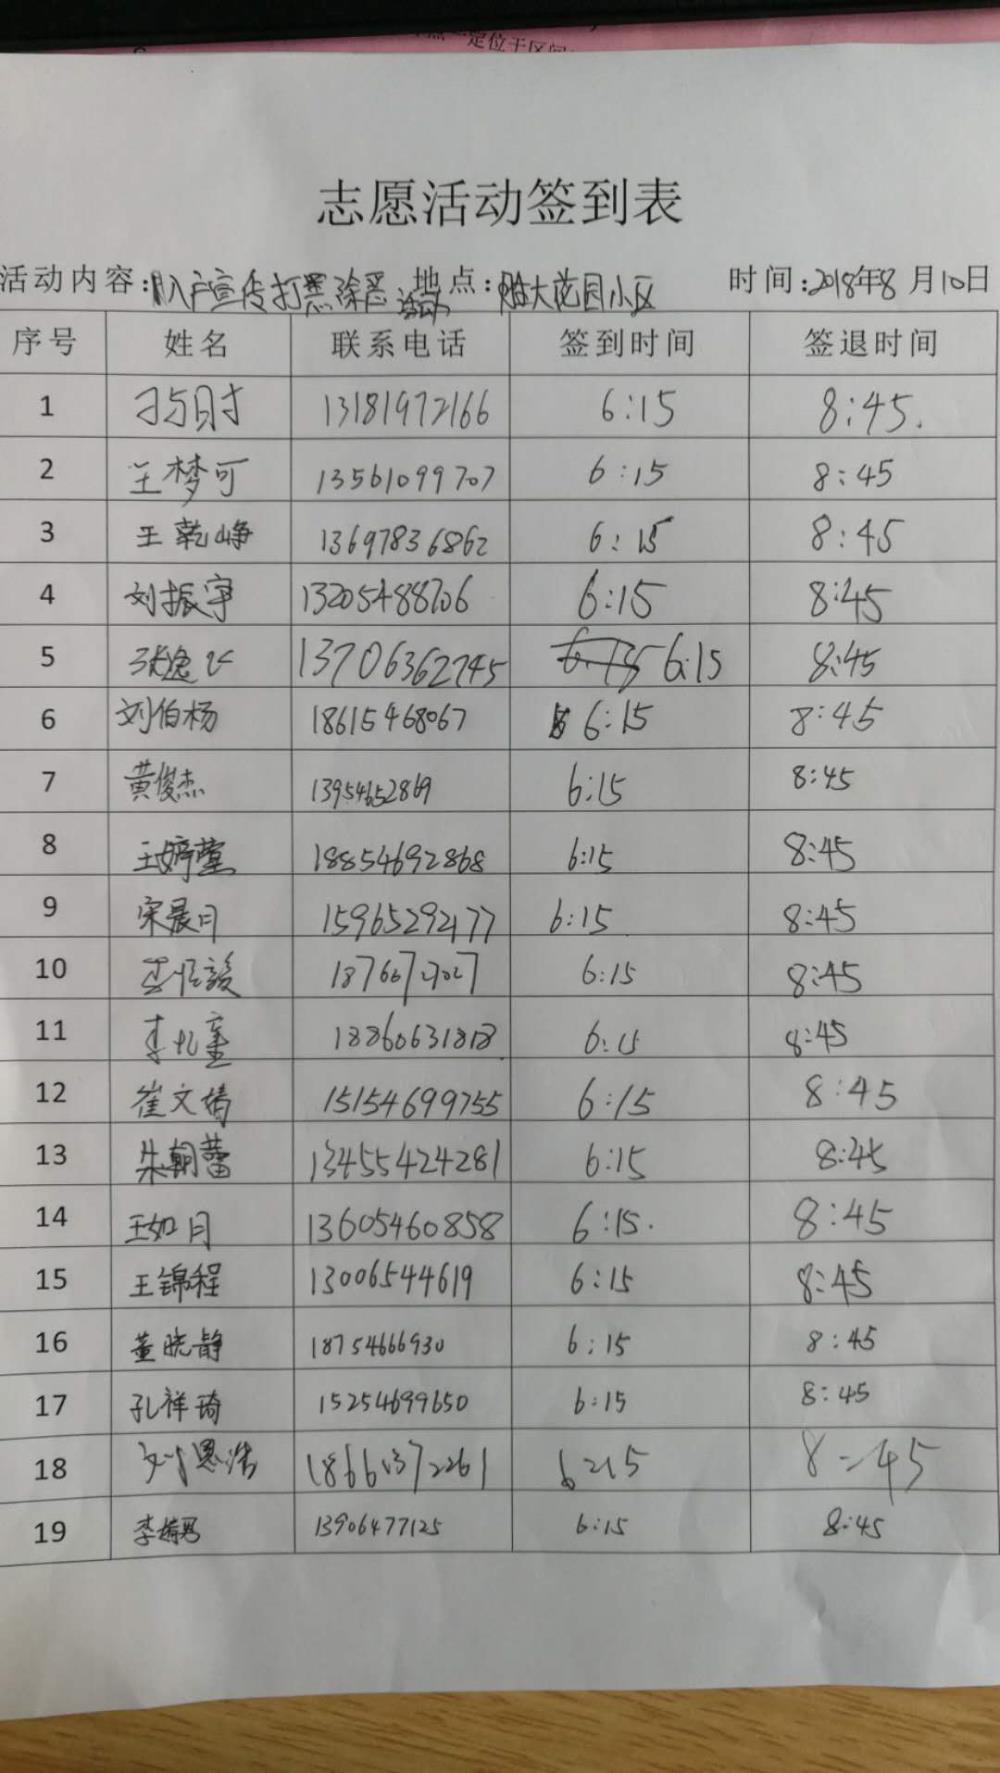 定位于区间
志愿活动签到表
活动内容:入户宣传打黑除恶活动 地点:大花园小区 时间:2018年8月10日
序号 姓名 联系电话 签到时间 签退时间
1 刁与时 13181972166 6:15 8:45.
2 王梦可 13561099707 6:15 8:45
3 王乾峥 13697836862 6:15 8:45
4 刘振宇 13205488706 6:15 8:45
5 张逸飞 13706362745 6:15 8:45
6 刘伯杨 18615468067 6:15 8:45
7 黄俊杰 13954652869 6:15 8:45
8 王婷萱 18854692868 6:15 8:45
9 宋晨月 15965292177 6:15 8:45
10 6:15 8:45
11 李 18860631818 6:15 8:45
12 崔文婧 15154699755 6:15 8:45
13 朱朝蕾 13455424281 6:15 8:45
14 王如月 13605460858 6:15. 8:45
15 王锦程 13006544619 6:15 8:45
16 董晓静 18754666930 6:15 8:45
17 孔祥琦 15254699650 6:15 8:45
18 刘恩浩 18661372261 6:15 8:45
19 李 13906477125 6:15 8:45